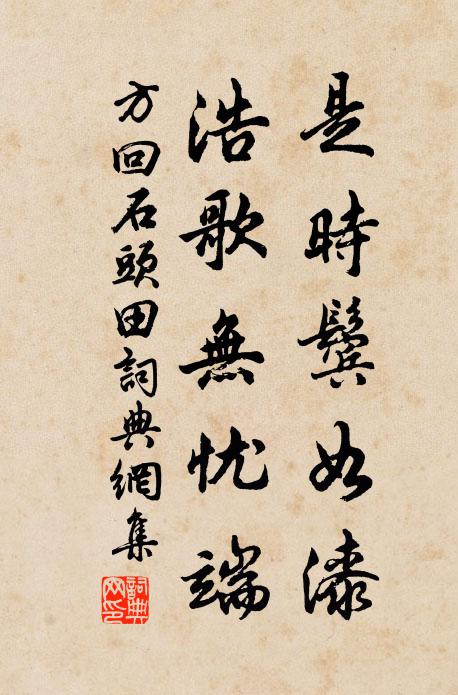 是時鬢如漆
浩歌無忧端
方回石頭田詞典網集
詞典網印